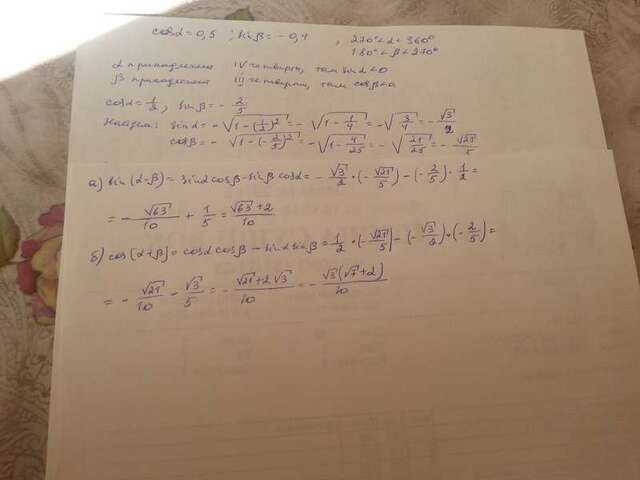 cosα = 0,5 ; sinβ = -0,4 , 270° < α < 360°
180° < β < 270°
α принадлежит IV четверти, там sinα < 0
β принадлежит III четверти, там cosβ < 0
cosα = 1/2 , sinβ = - 2/5
Найдем: sinα = -√(1-(1/2)²) = -√(1-1/4) = -√(3/4) = -√3/2
cosβ = -√(1-(-2/5)²) = -√(1-4/25) = -√(21/25) = -√21/5
а) sin(α-β) = sinα cosβ - sinβ cosα = -√3/2 · (-√21/5) - (-2/5) · 1/2 =
= -√63/10 + 1/5 = √63+2/10
б) cos(α+β) = cosα cosβ - sinα sinβ = 1/2 · (-√21/5) - (-√3/2) · (-2/5) =
= -√21/10 - √3/5 = -√21+2√3/10 = -√3(√7+2)/10